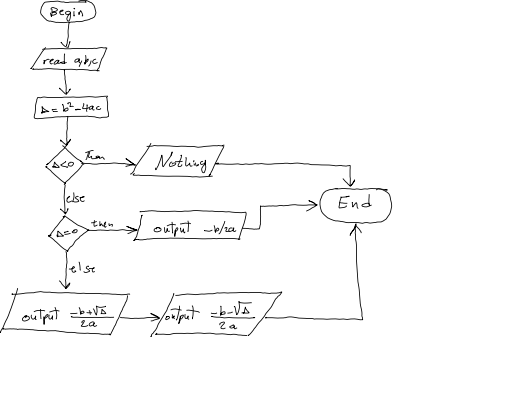 Begin
read a,b,c
Δ=b²-4ac
Δ<0
then
Nothing
else
End
Δ=0
then
output -b/2a
else
output -b+√Δ/2a
output -b-√Δ/2a